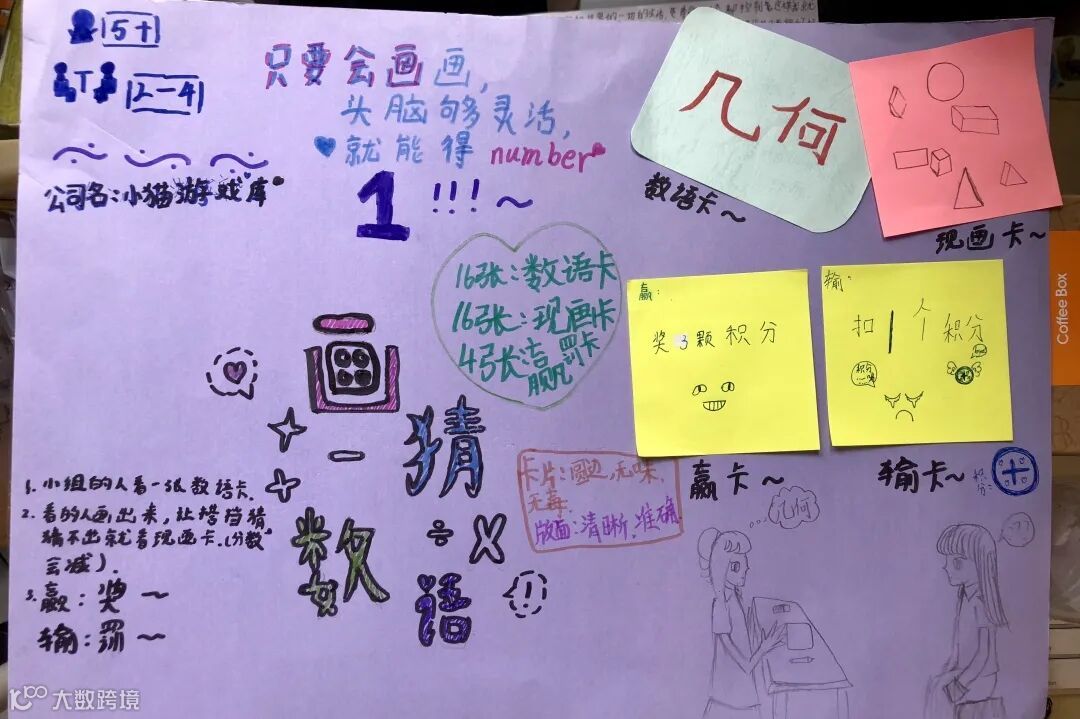 5+
2-4
公司名:小猫游戏库
只要会画画,
头脑够灵活,
就能得 number
1 !!!~
几何
数语卡~
现画卡~
16张:数语卡
16张:现画卡
4张:赢罚卡
赢:
奖3颗积分
赢卡~
输:
扣1个积分
积分
输卡~
积分:
画
猜
数
语
卡片:圆边,无味,
无毒.
版面:清晰.准确
1. 小组的人看一张数语卡.
2. 看的人画出来,让搭挡猜
猜不出就看现画卡.(分数
会减).
3. 赢:奖~
输:罚~
几何
???
Coffee Box
大数跨境